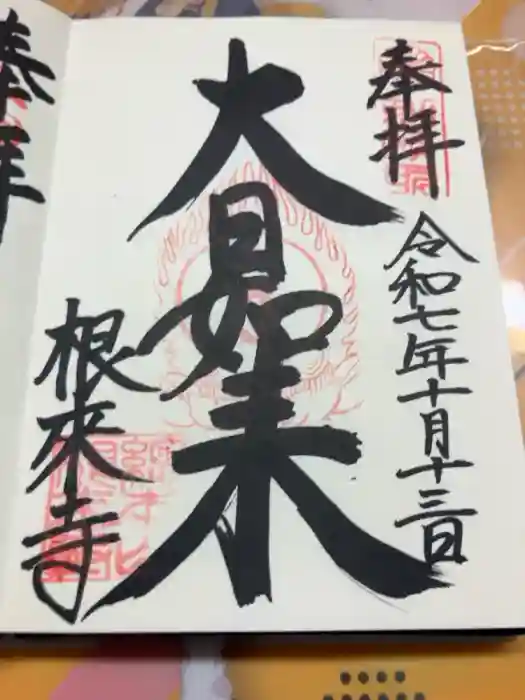 奉拝
令和七年十月十三日
大日如来
根來寺
奉拝